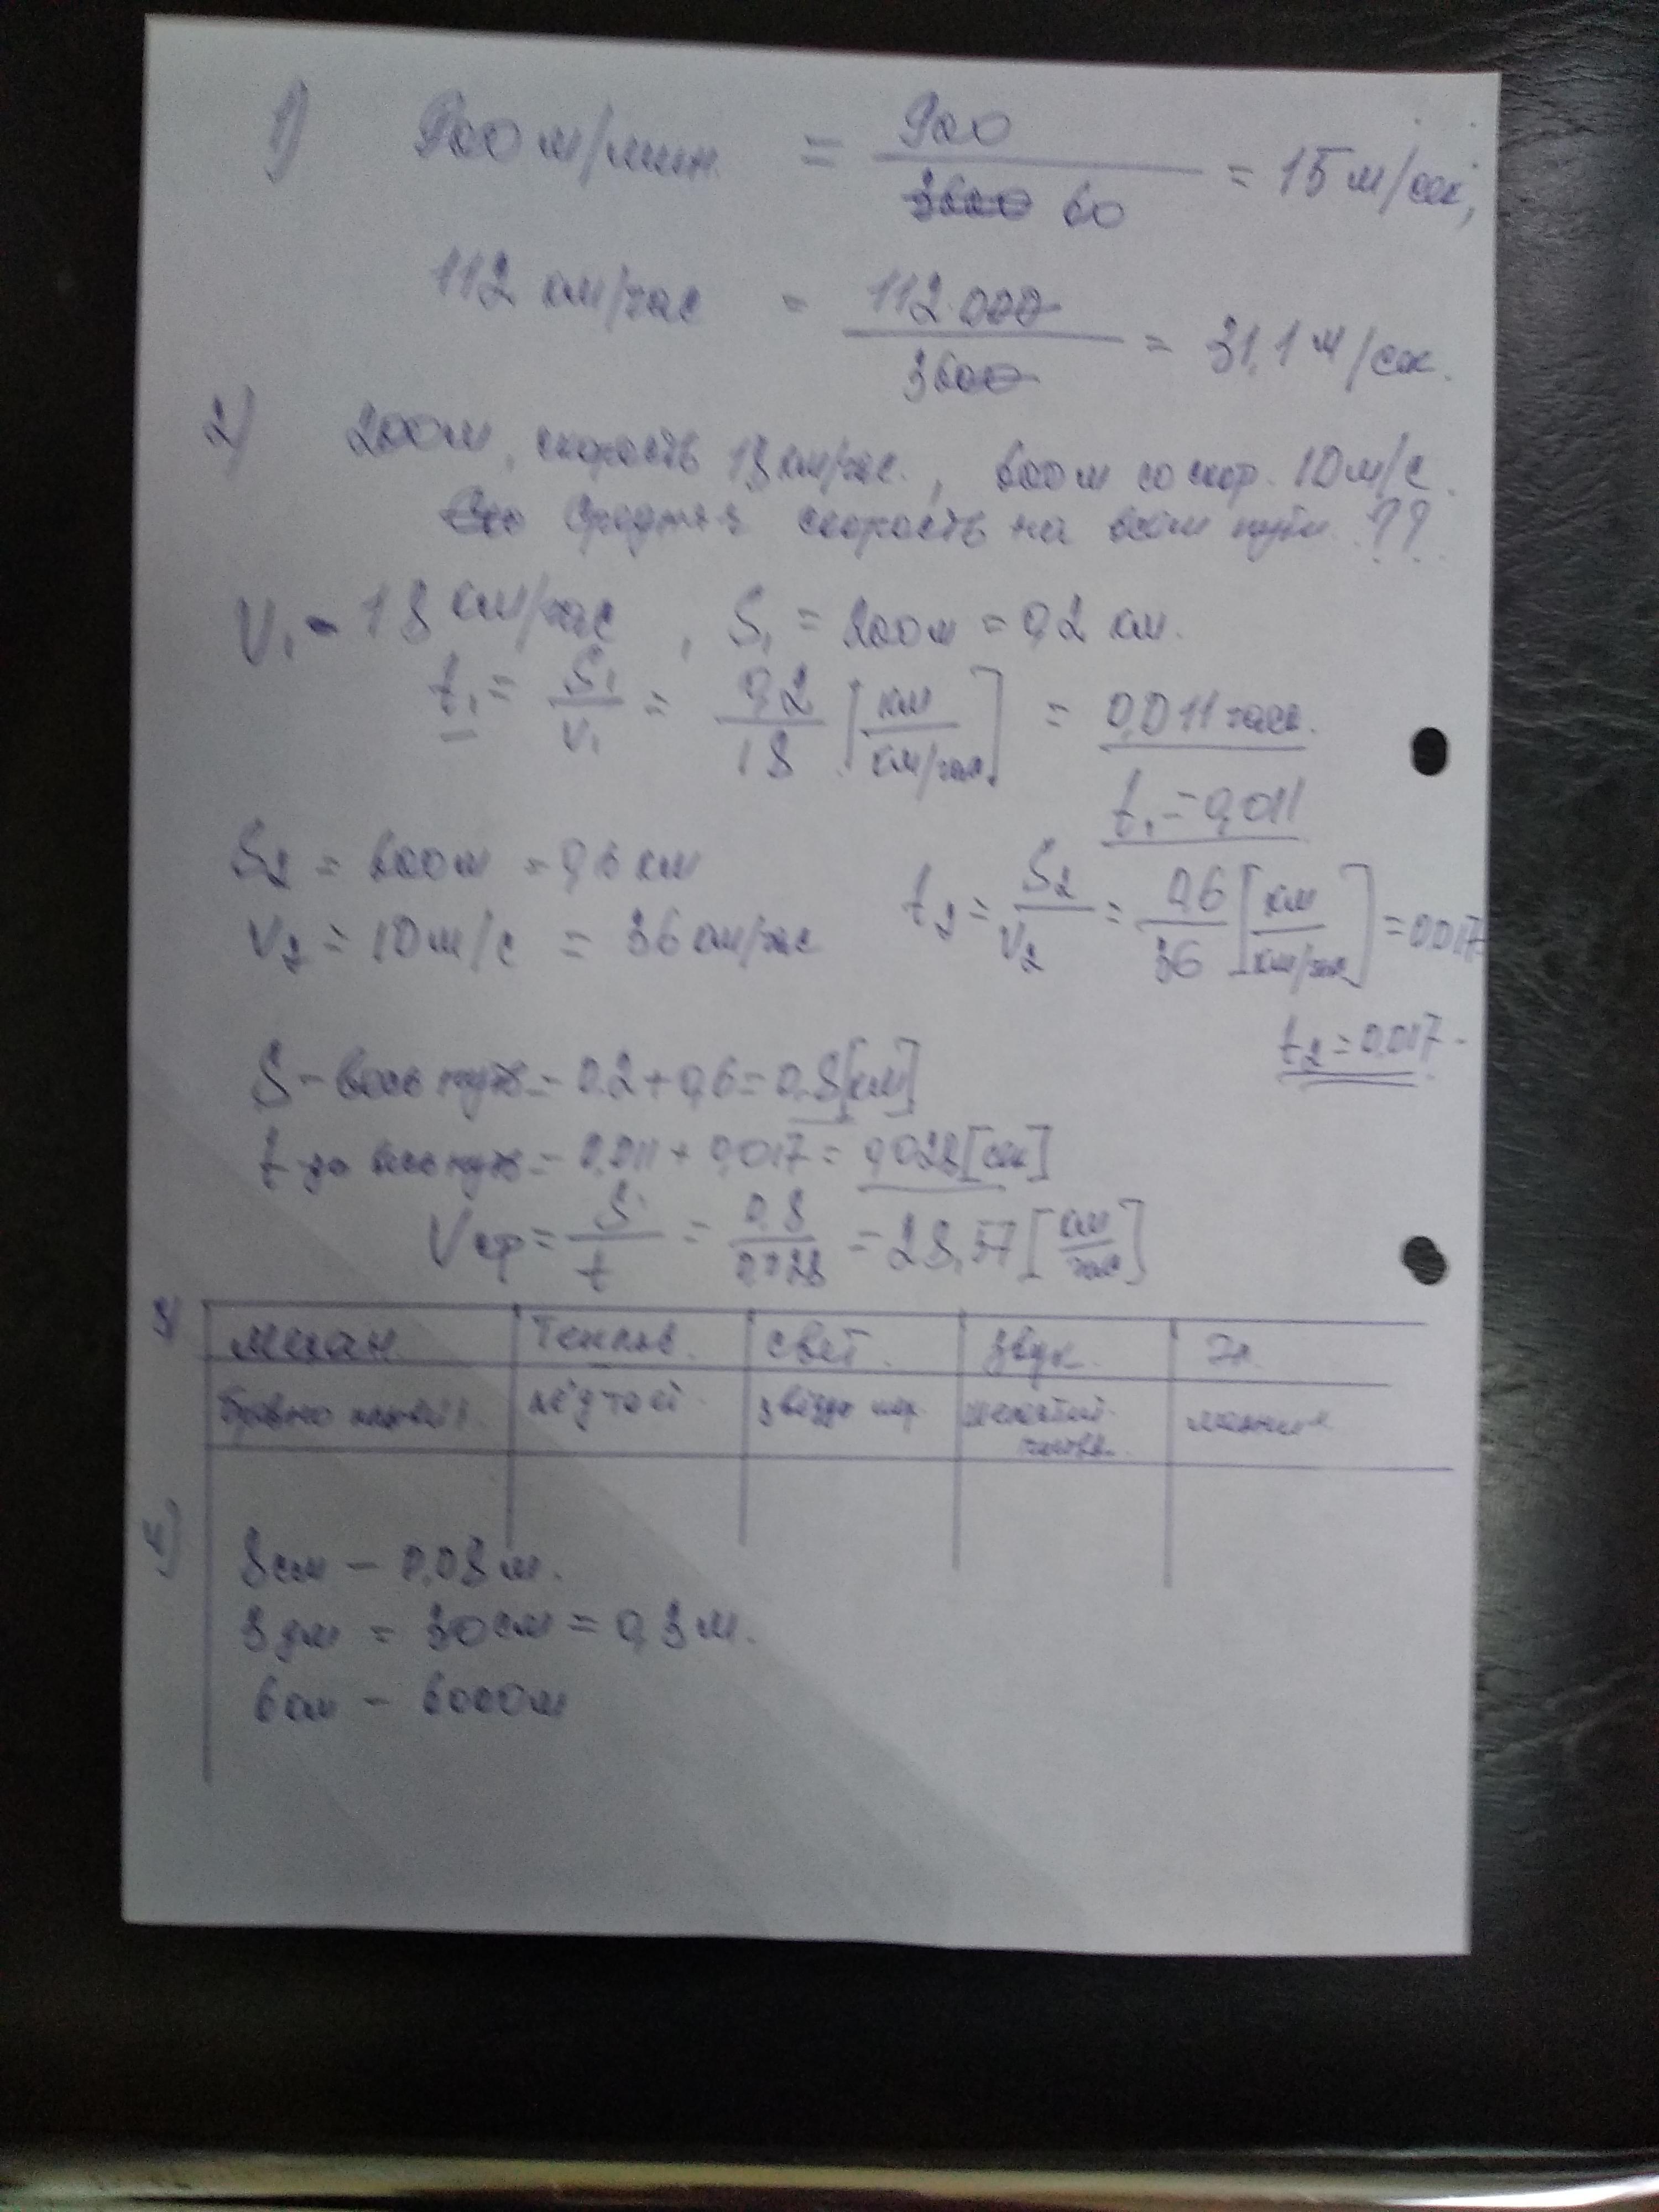 1) 900 м/мин. = 900 / 3600 60 = 15 м/сек,
112 км/час = 112.000 / 3600 = 31,1 м/сек.
2) 200м, скорость 18 км/час., 600м со скор. 10м/с.
Средняя скорость на всём пути ??
V₁ - 18 км/час, S₁ = 200м = 0,2 км.
t₁ = S₁ / V₁ = 0,2 / 18 [км / км/час] = 0,011 часа.
t₁ = 0,011
S₂ = 600м = 0,6 км
V₂ = 10м/с = 36 км/час
t₂ = S₂ / V₂ = 0,6 / 36 [км / км/час] = 0.017
t₂ = 0,017.
S - весь путь = 0.2 + 0,6 = 0,8 [км]
t за весь путь = 0,011 + 0,017 = 0,028 [сек]
Vср = S / t = 0,8 / 0,028 = 28,57 [км / час]
3) механ. теплов. свет. звук. Эл.
Бревно лёд тает. звёзды
4) 8см - 0,08 м.
3дм = 30см = 0,3 м.
6км - 6000м